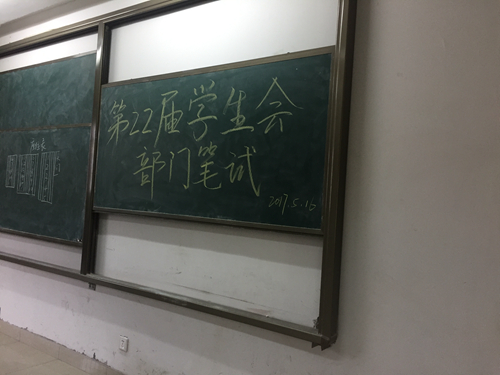 第22届学生会
部门笔试
2017.5.16